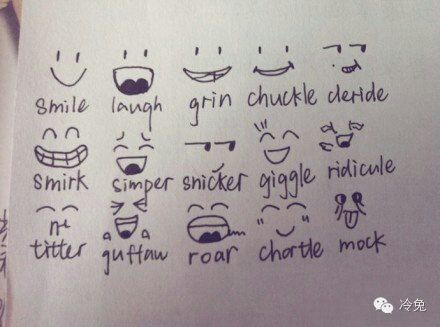 smile laugh grin chuckle deride
smirk simper snicker giggle ridicule
titter guffaw roar chortle mock
冷兔